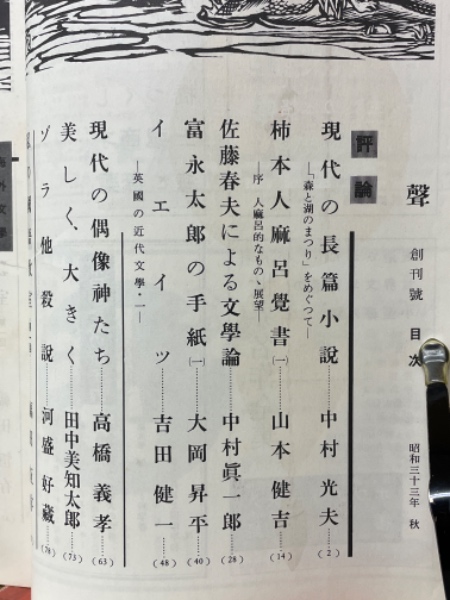 聲 創刊號 目次 昭和三十三年 秋
評論
現代の長篇小説……中村光夫……(2)
―「森と湖のまつり」をめぐって―
柿本人麻呂覺書(一)……山本健吉……(14)
―序 人麻呂的なもの、展望―
佐藤春夫による文學論……中村眞一郎……(28)
富永太郎の手紙(一)……大岡昇平……(40)
イエイツ……吉田健一……(48)
―英國の近代文學・一―
現代の偶像神たち……高橋義孝……(63)
美しく、大きく……田中美知太郎……(73)
ゾラ他殺説……河盛好藏……(78)
海外文學